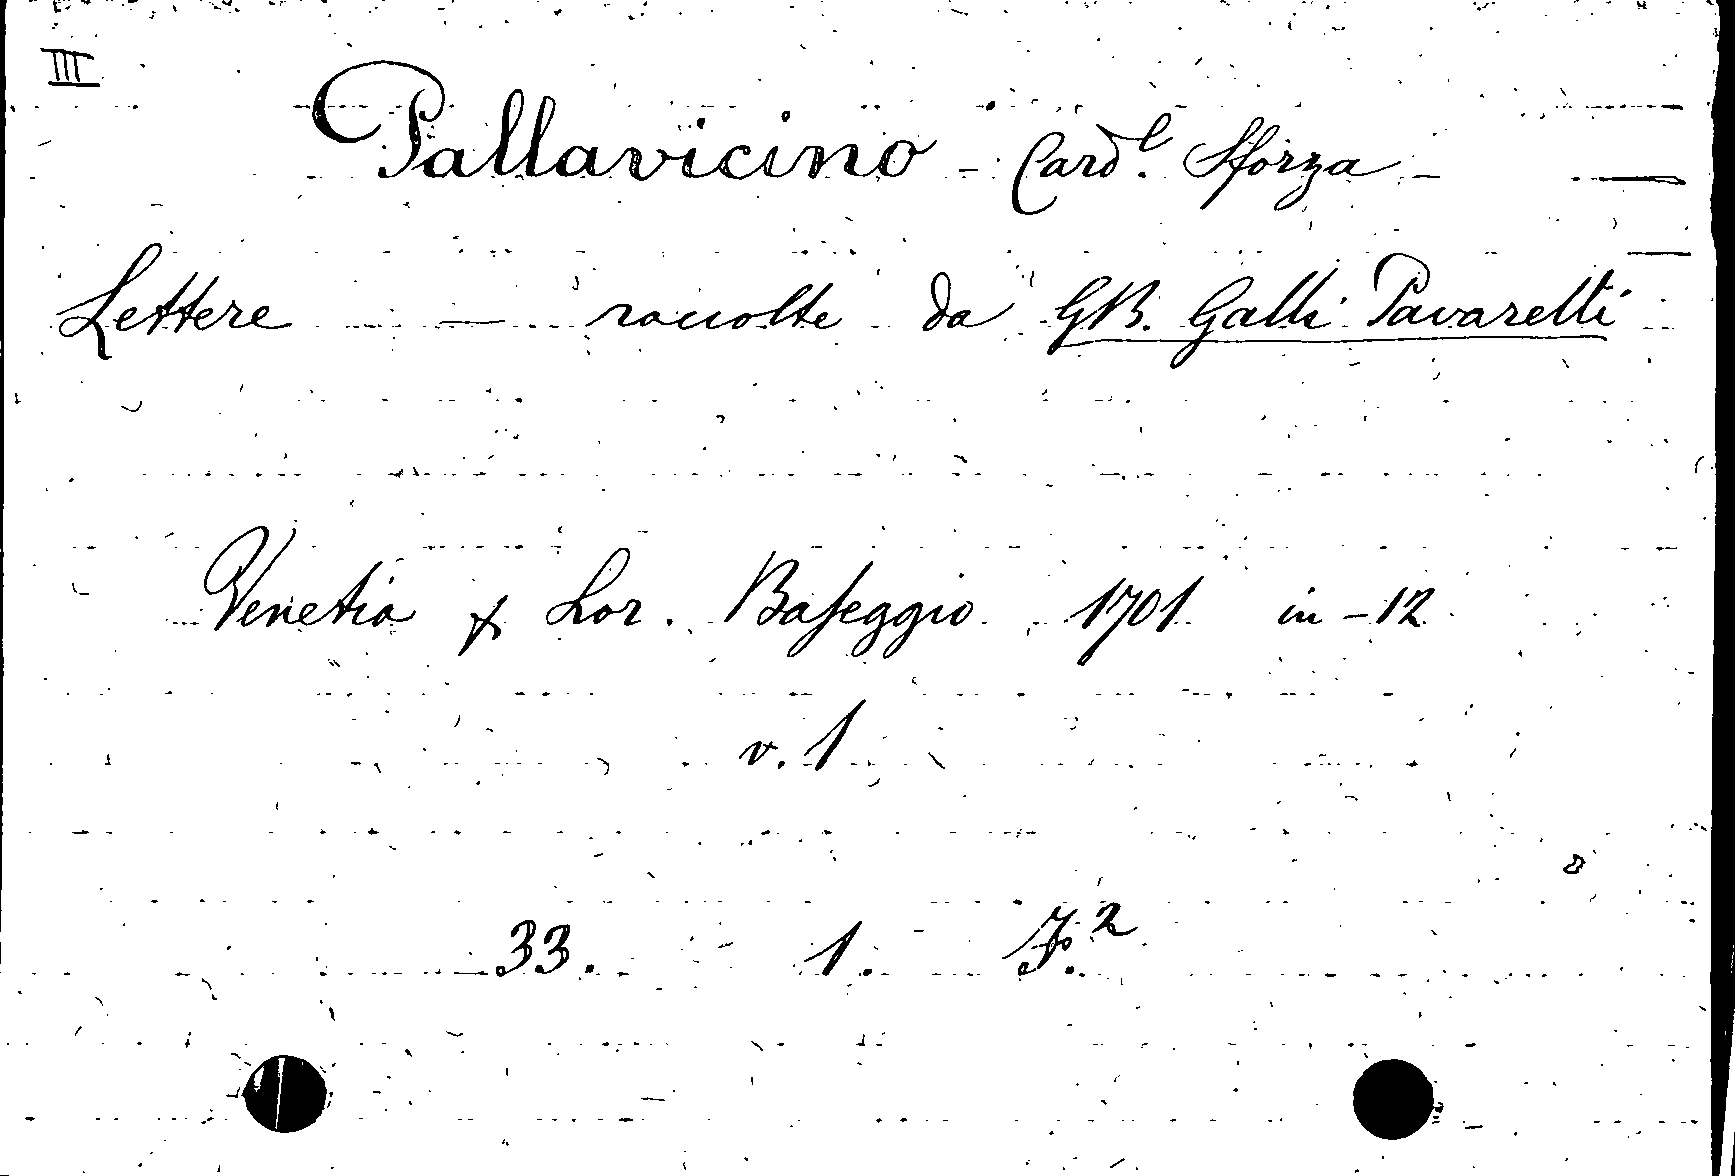 III
Pallavicino - Card.l Sforza -
Lettere — raccolte da GB. Galli Pavarelli
Venetia x Lor. Baseggio 1701 in-12
v. 1
33. 1. F.2